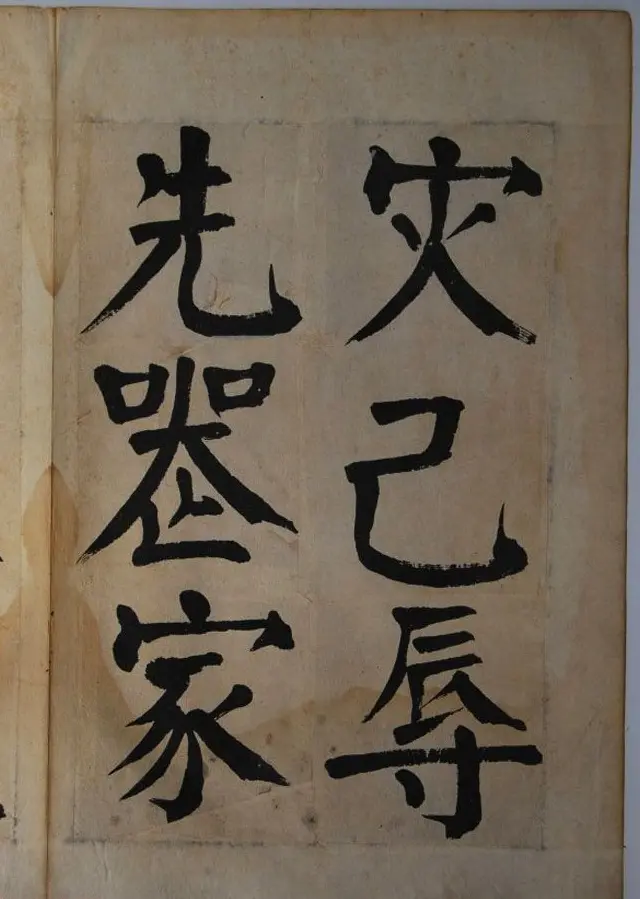 灾己辱
先喪家